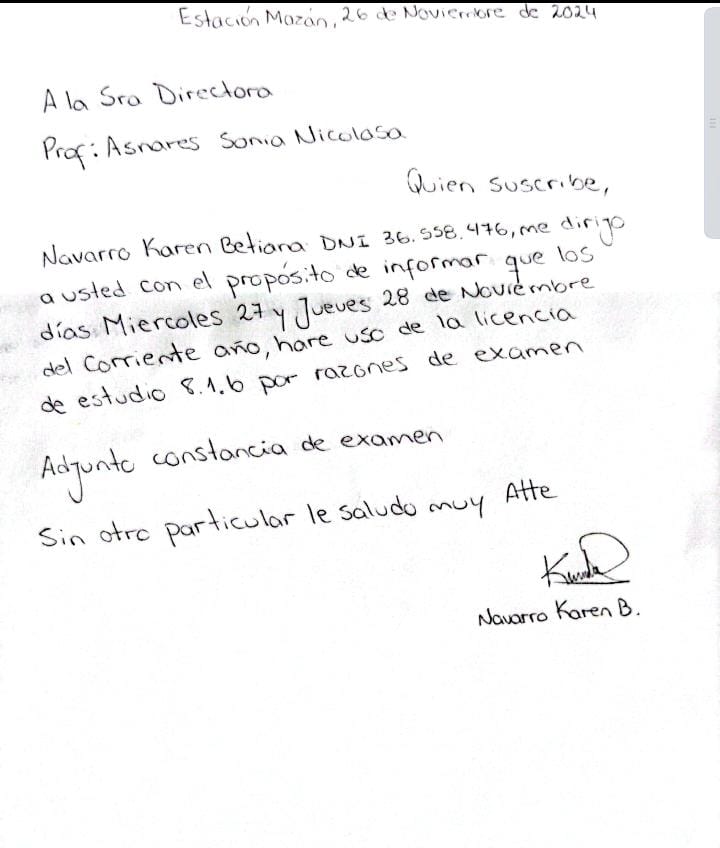 Estación Mazán, 26 de Noviembre de 2024
A la Sra Directora
Prof: Asnares Sonia Nicolasa
Quien suscribe,
Navarro Karen Betiana DNI 36.558.476, me dirijo
a usted con el propósito de informar que los
días Miercoles 27 y Jueves 28 de Noviembre
del Corriente año, hare uso de la licencia
de estudio 8.1.b por razones de examen
Adjunto constancia de examen
Sin otro particular le saludo muy Atte
Navarro Karen B.